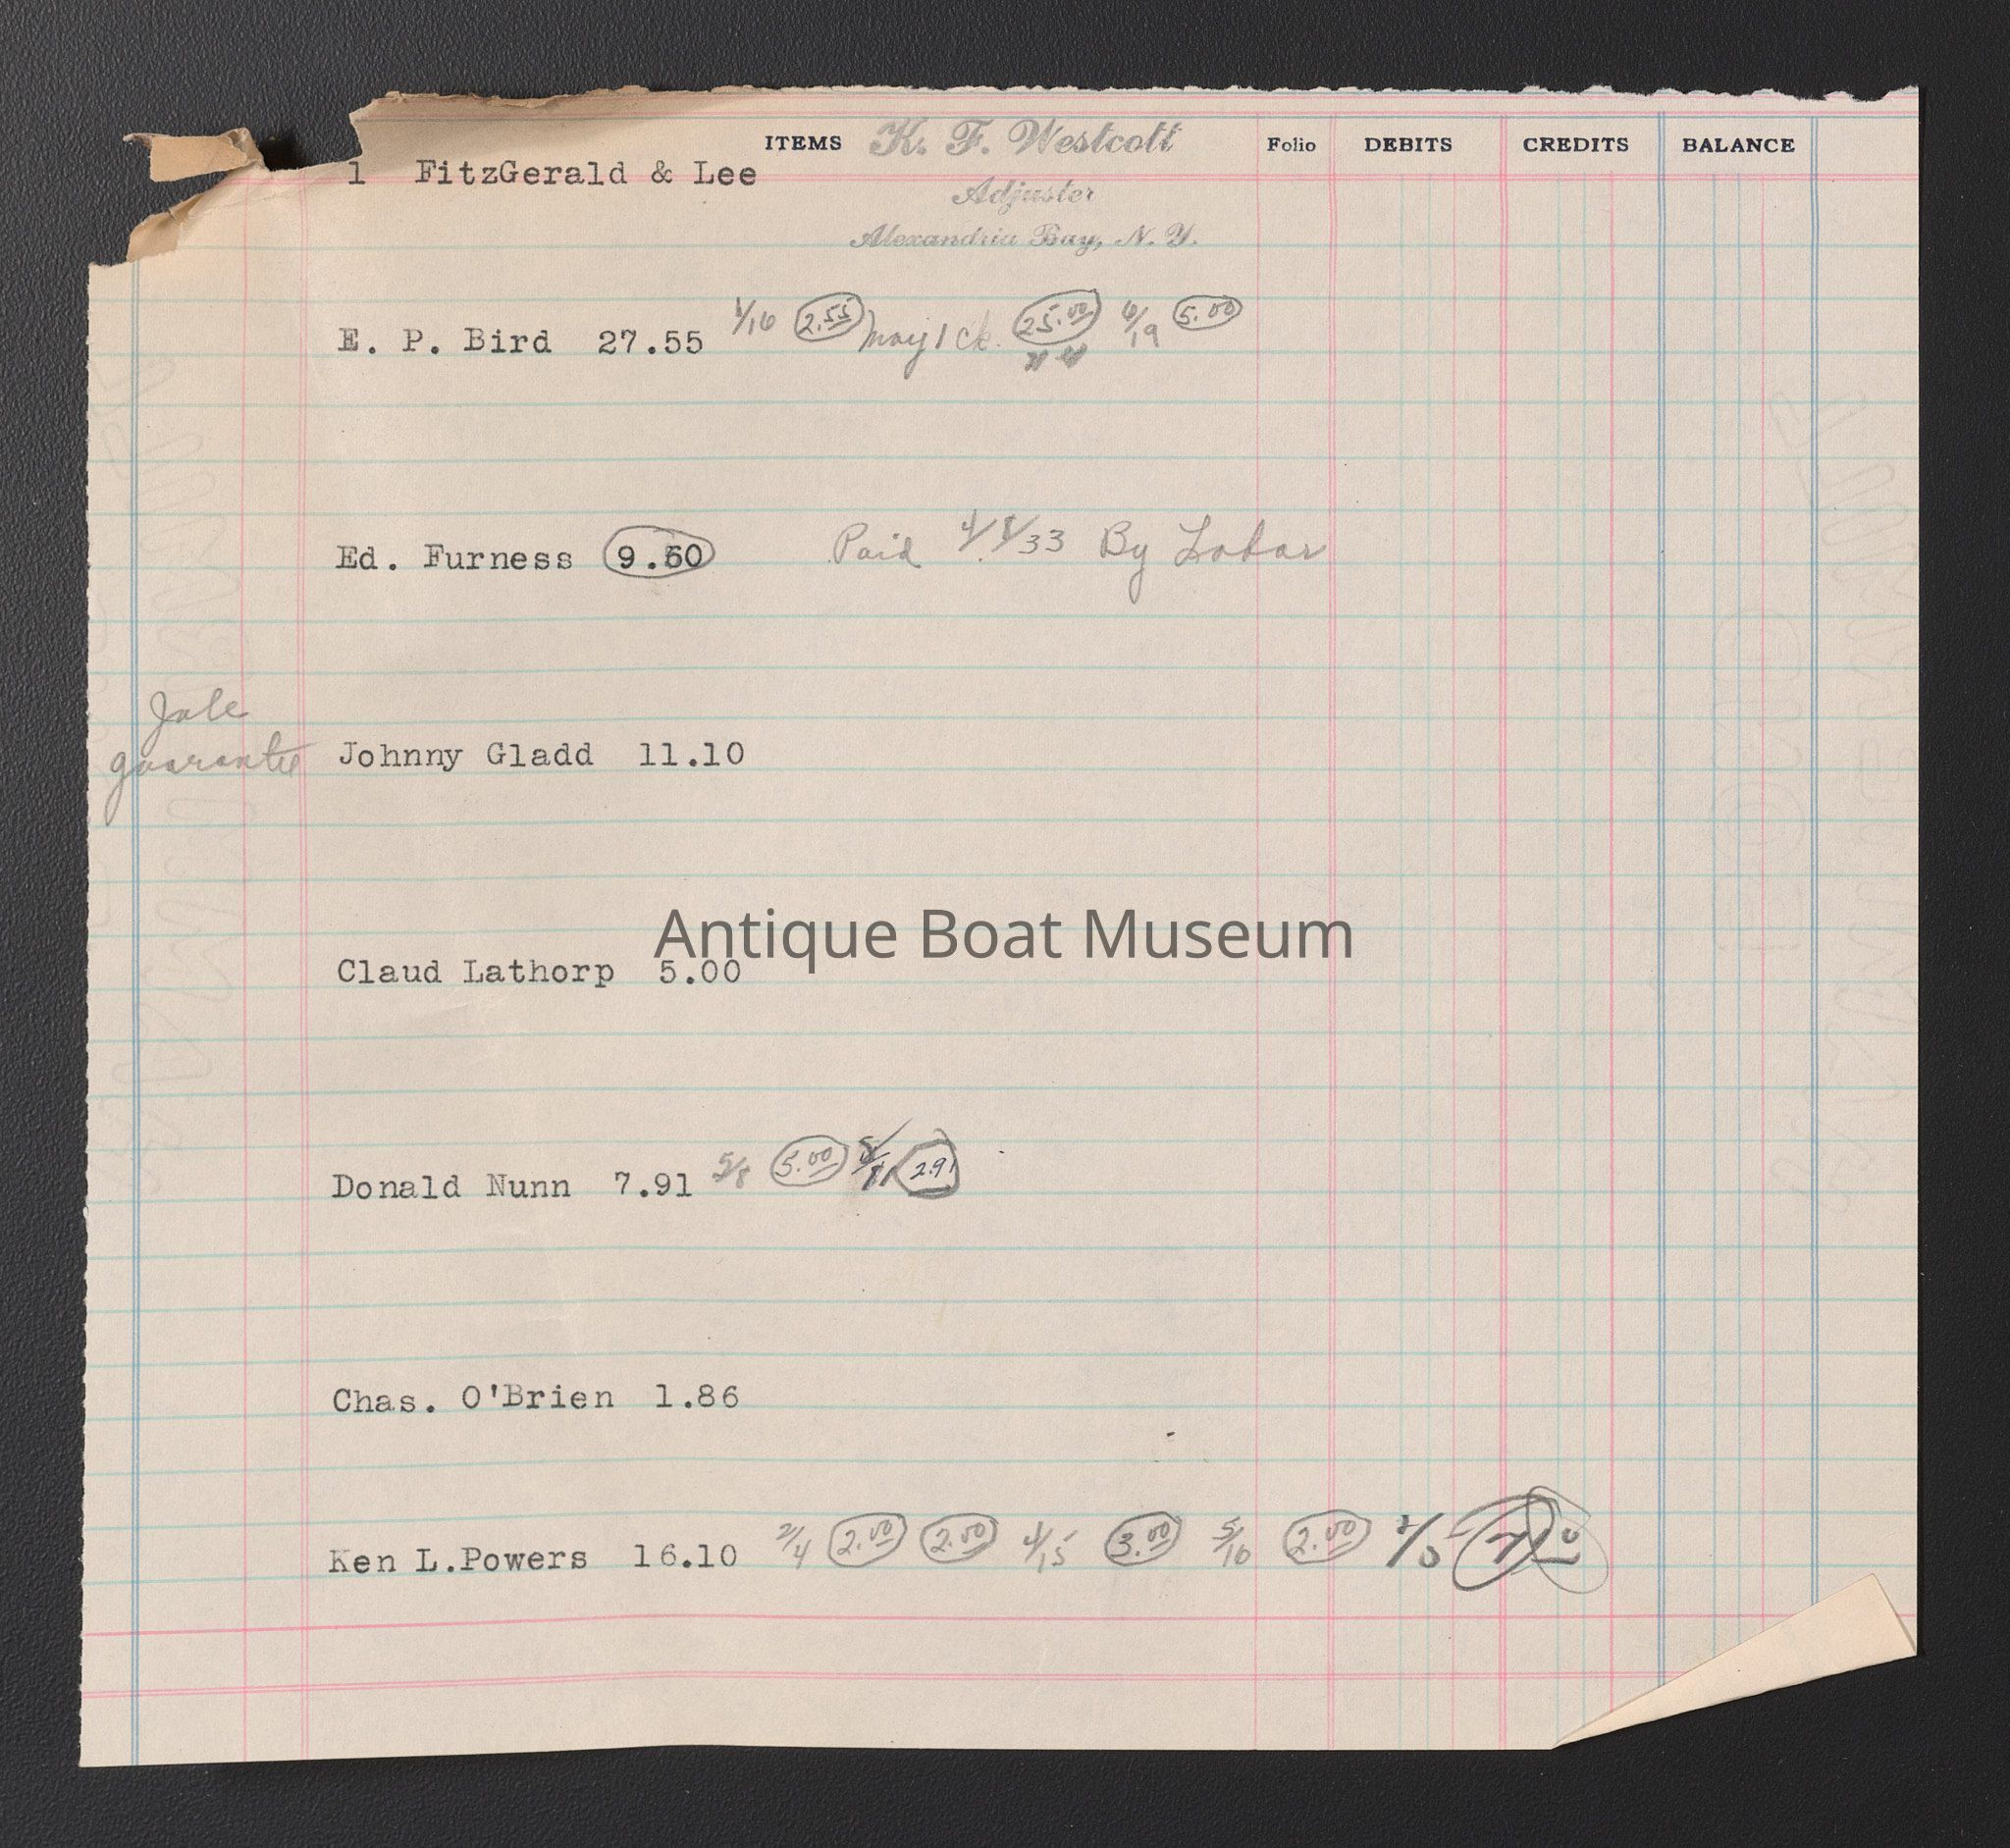 ITEMS K. F. Westcott Folio DEBITS CREDITS BALANCE
1 FitzGerald & Lee
Adjuster
Alexandria Bay, N. Y.
E. P. Bird 27.55 1/16 2.55 May 1 Ck. 25.00 6/19 5.00
Ed. Furness 9.60 Paid 4/8/33 By Labor
guarantee Johnny Gladd 11.10
Antique Boat Museum
Claud Lathorp 5.00
Donald Nunn 7.91 5/8 5.00 2.91
Chas. O'Brien 1.86
Ken L.Powers 16.10 2/4 2.00 2.00 4/15 3.00 5/16 2.00